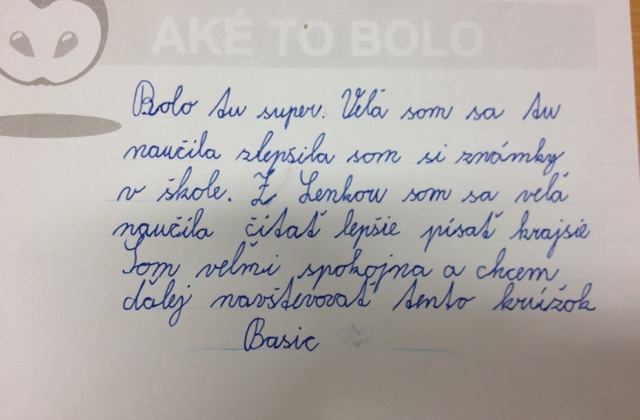 AKÉ TO BOLO
Bolo tu super. Velá som sa tu
naučila zlepšila som si známky
v škole. Z Lenkou som sa velá
naučila čítať lepšie písať krajsie
Som veľmi spokojna a chcem
ďalej navštevovať tento krúžok
Basic